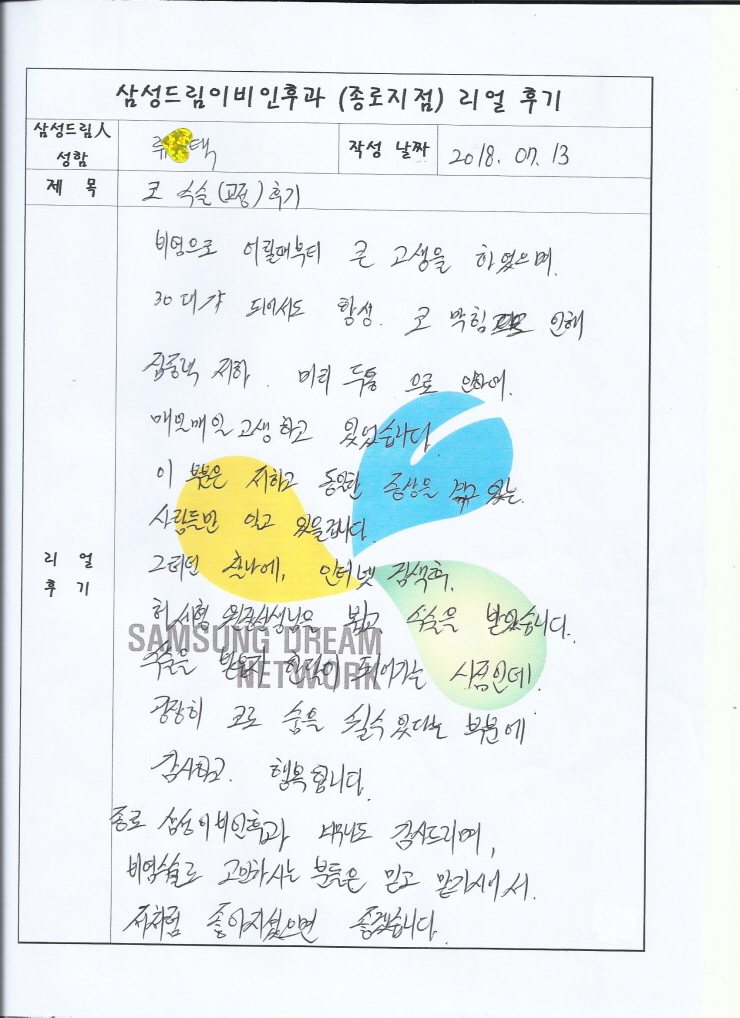 삼성드림이비인후과 (종로지점) 리얼 후기
삼성드림人 성함
류 택
작성 날짜
2018. 07. 13
제 목
코 수술(교정) 후기
리 얼 후 기
비염으로 어릴때부터 큰 고생을 하였으며.
30대가 되어서도 항상. 코 막힘 인해
집중력 저하. 머리 두통 으로 인하여.
매일매일 고생 하고 있었습니다.
이 부분은 저하고 동일한 증상을 겪고 있는.
사람들만 알고 있을겁니다.
그러던 찰나에, 인터넷 검색후.
허세형 원장선생님을 뵙고 수술을 받았습니다.
수술을 받은지 한달이 되어가는 시점인데!
굉장히 코로 숨을 쉴수있다는 부분에
감사하고. 행복합니다.
종로 삼성이비인후과 너무나도 감사드리며,
비염수술로 고민하시는 분들은 믿고 맡기시어서.
저처럼 좋아지셨으면 좋겠습니다.
SAMSUNG DREAM
NETWORK